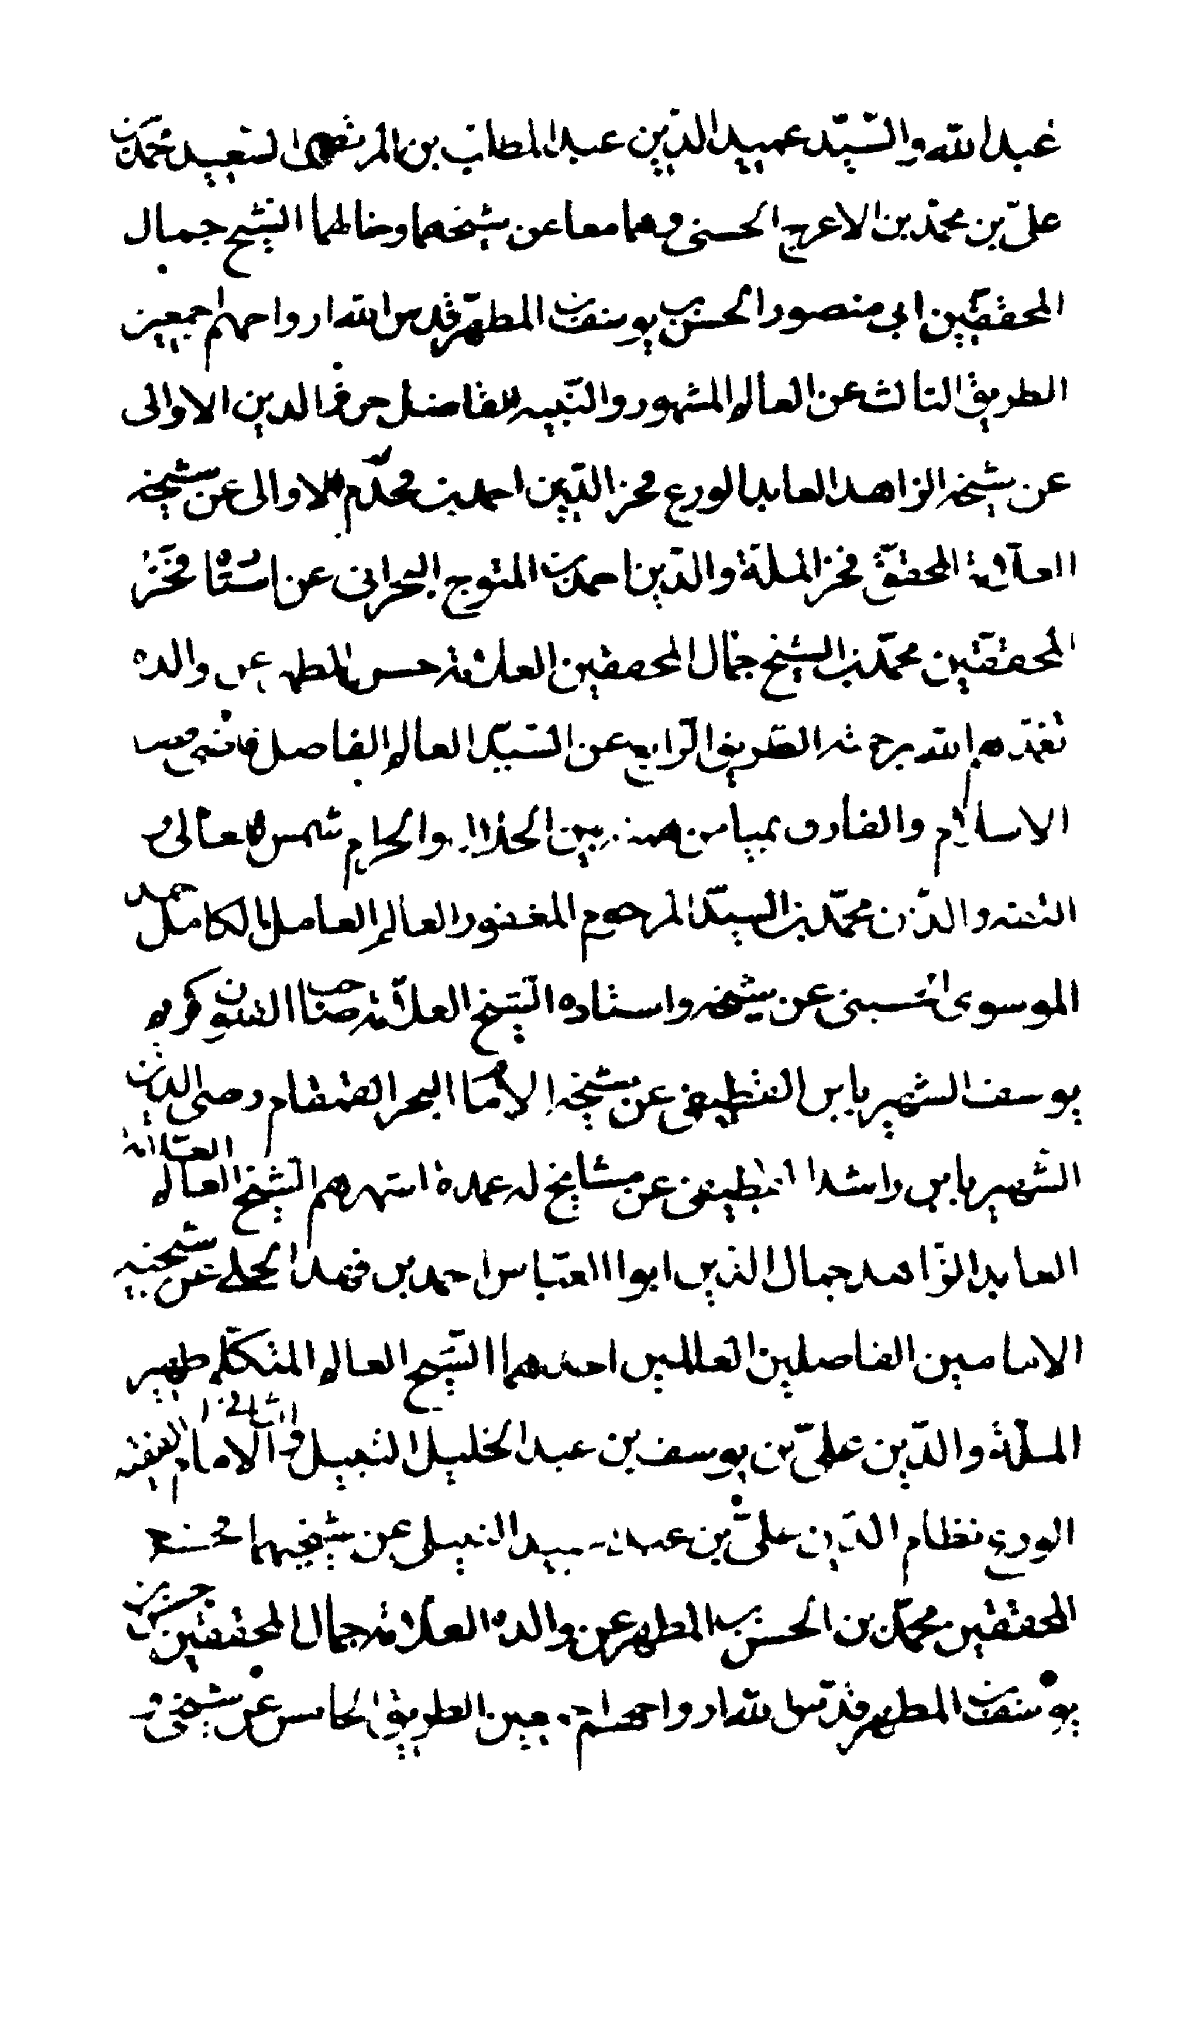 عبد الله والسيّد عميد الدّين عبد المطلب بن المرتضى السعيد محمّد بن
علىّ بن محمّد بن الاعرج الحسنى وهما معا عن شيخهما وخالهما الشيخ جمال
المحققين ابى منصور الحسن بن يوسف بن المطهّر قدس الله ارواحهم اجمعين
الطريق الثالث عن العالم المشهور والنّبيه الفاضل الدين الاوالى
عن شيخه الزاهد العابد الورع فخر الدّين احمد بن محمّد الاوالى عن شيخه
العلّامة المحقّق فخر الملّة والدّين احمد بن المتوج البحرانى عن استاد فخر
المحققين محمّد بن الشيخ جمال المحققين العلامة حسن المطهر عن والده
تغمّدهم الله برحمته الطريق الرّابع عن السّيّد العالم الفاضل
الاسلام والفارق بميامن بين الحلال والحرام شمس المعالى و
الفقه والدّين محمّد بن السيّد المرحوم المغفور العالم العامل الكامل احمد
الموسوى الحسينى عن شيخه واستاده الشيخ العلّامة صاحب الفنون كريم
يوسف الشهير بابن القطيفى عن شيخه الامام البحر القمقام رضى الدين
الشّهير بابن راشد القطيفى عن مشايخ له عمدة اشهرهم الشيخ العالم العلّامة
العابد الزّاهد جمال الدّين ابو العبّاس احمد بن فهد الحلى عن شيخيه
الامامين الفاضلين العالمين احدهما الشّيخ العالم المتكلّم ظهير
الملّة والدّين علىّ بن يوسف بن عبد الجليل النيلى والثانى الامام الفقيه
الورع نظام الدّين علىّ بن عبد الحميد النيلى عن شيخيهما فخر
المحققين محمّد بن الحسن بن المطهر عن والده العلّامة جمال المحققين حسن بن
يوسف بن المطهر قدّس الله ارواحهم اجمعين الطريق الخامس عن شيخى و